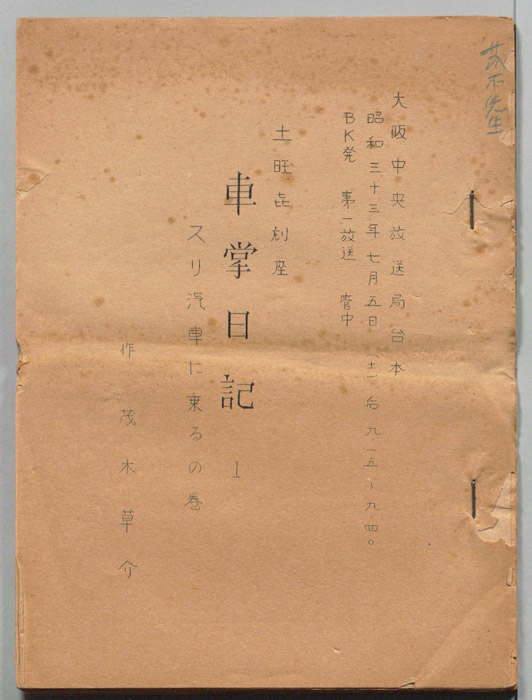 茂木先生
大阪中央放送局台本
昭和三十三年七月五日(土)后九.一五~九.四〇
BK発 第一放送 管中
土旺㐂劇座
車掌日記 1
スリ汽車に乗るの巻
作 茂木草介